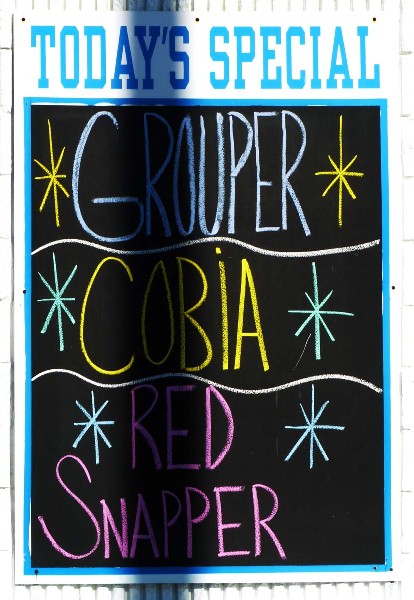 TODAY'S SPECIAL
GROUPER
COBiA
RED
SNAPPER